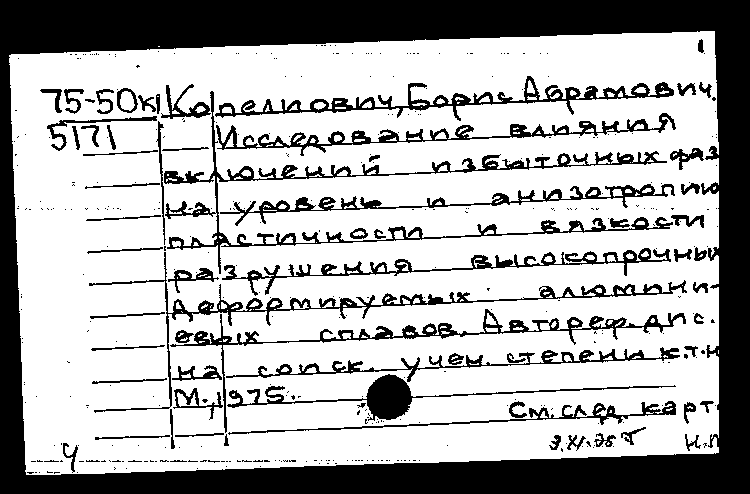 75-50к Копелиович, Борис Абрамович.
5171 Исследование влияния
включений избыточных фаз
на уровень и анизотропию
пластичности и вязкости
разрушения высокопрочных
деформируемых алюмини-
евых сплавов. Автореф. дис.
на соиск. учен. степени к.т.н
М., 1975.
См. след. карт
Н.П
4